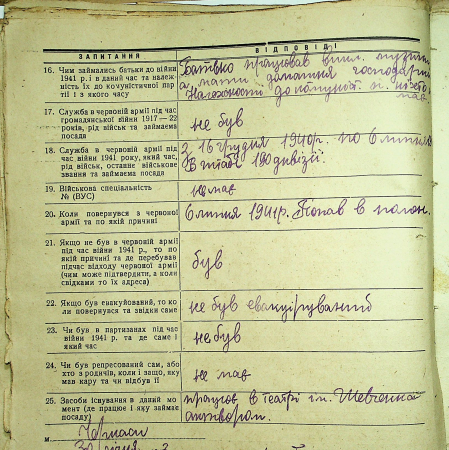 ЗАПИТАННЯ
ВІДПОВІДІ
16. Чим займались батьки до війни
1941 р. і в даний час та належ-
ність їх до комуністичної пар-
тії і з якого часу
Батько працював вчит. музики
мати домашня господарка
Належності до комуніст. п. не
мав
17. Служба в червоній армії під час
громадянської війни 1917 — 22
років, рід військ та займаєма
посада
не був
18. Служба в червоній армії під
час війни 1941 року, який час,
рід військ, останнє військове
звання та займаєма посада
З 16 грудня 1940р. по 6 липня
В штабі 190 дивізії.
19. Військова спеціальність
№ (ВУС)
не мав
20. Коли повернувся з червоної
армії та по якій причині
6 липня 1941р. Попав в полон.
21. Якщо не був в червоній армії
під час війни 1941 р., то по
якій причині та де перебував
підчас відходу червоної армії
(чим може підтвердити, а коли
свідками то їх адреса)
був
22. Якщо був евакуйований, то ко-
ли повернувся та звідки саме
не був евакуірований
23. Чи був в партизанах під час
війни 1941 р. та де саме і
який час
не був
24. Чи був репресований сам, або
хто з родичів, коли і защо, яку
мав кару та чи відбув її
не мав
25. Засоби існування в даний мо-
мент (де працює і яку займає
посаду)
працюю в театрі ім. Шевченка
актьором.
м. Черкаси